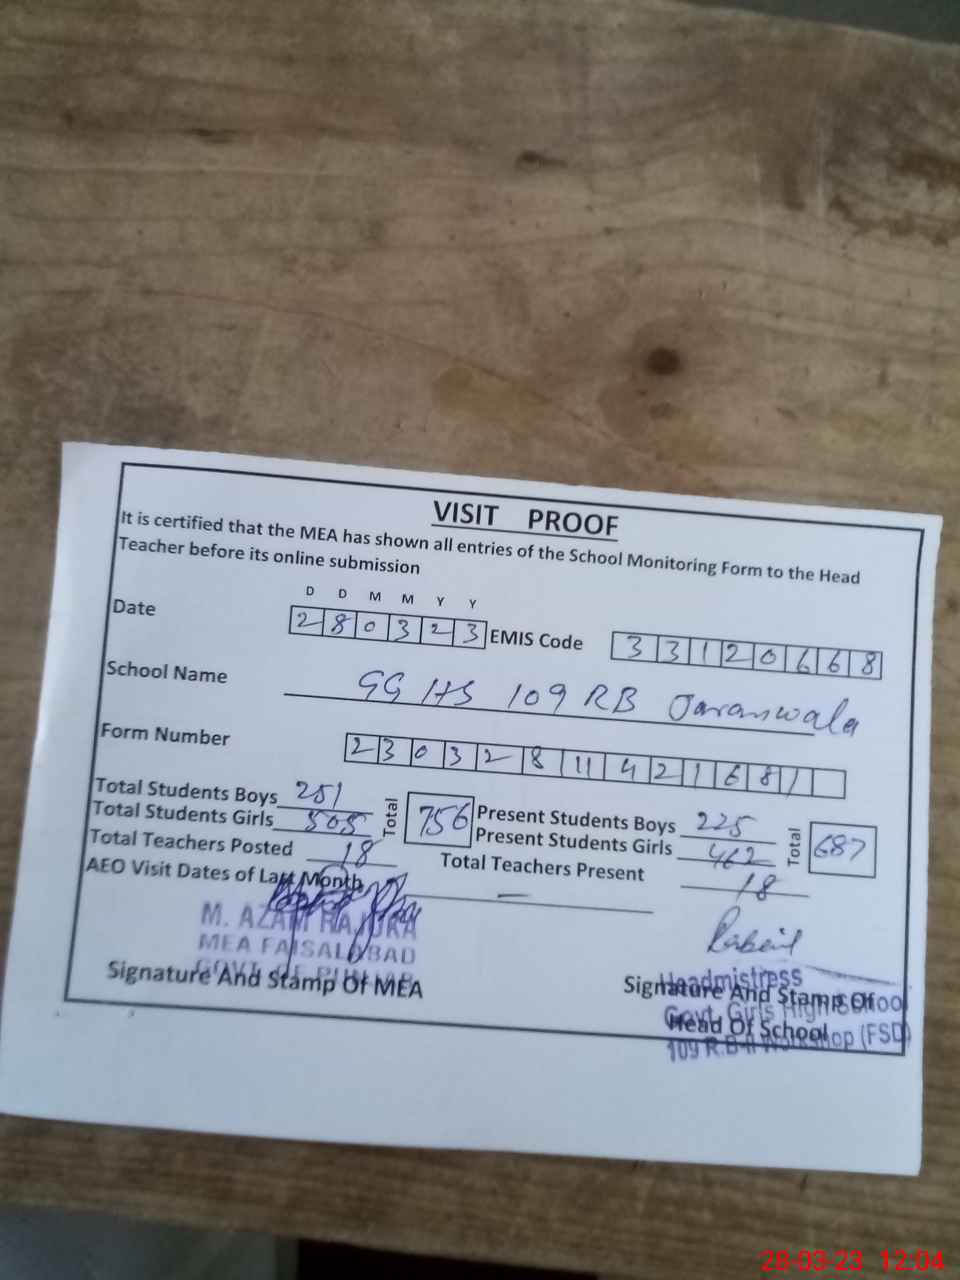 VISIT PROOF
It is certified that the MEA has shown all entries of the School Monitoring Form to the Head
Teacher before its online submission
D D M M Y Y
Date 280323 EMIS Code 33120668
School Name GGHS 109 RB Jaranwala
Form Number 2303281142168
Total Students Boys 251 Total 756 Present Students Boys 225 Total 687
Total Students Girls 505 Present Students Girls 462
Total Teachers Posted 18 Total Teachers Present 18
AEO Visit Dates of Last Month —
M. AZAM
MEA FAISALABAD
GOVT. OF PUNJAB
Signature And Stamp Of MEA
Headmistress
Signature And Stamp Of
Govt. Girls High School
Head Of School
109 R.B-II Workshop (FSD)
28-03-23 12:04